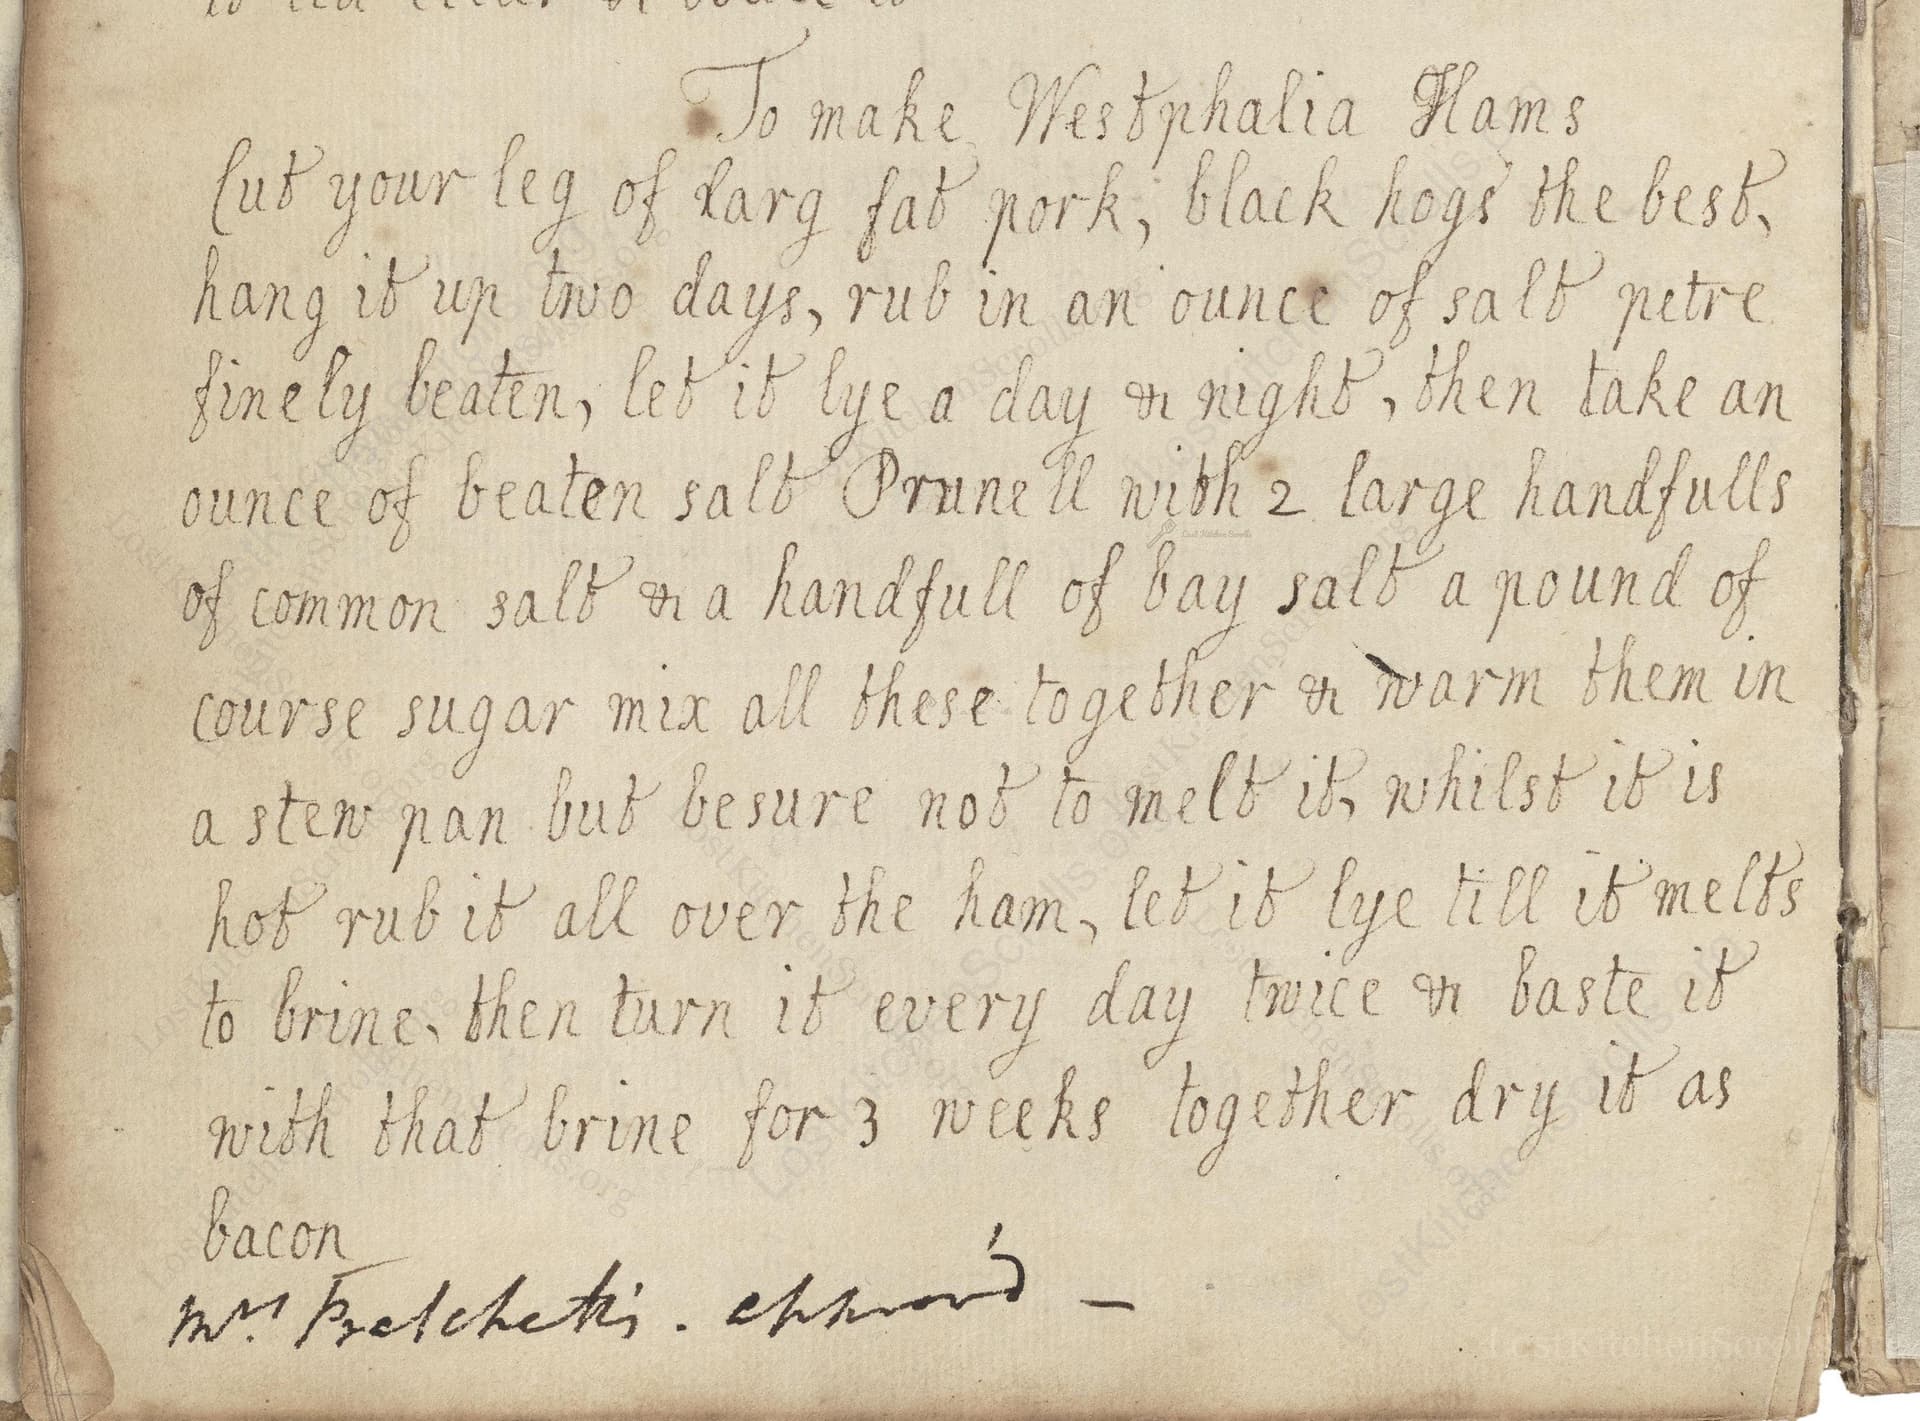 To make Westphalia Hams
Cut your leg of larg fat pork, black hogs the best,
hang it up two days, rub in an ounce of salt petre
finely beaten, let it lye a day & night, then take an
ounce of beaten salt Prunell with 2 large handfulls
of common salt & a handfull of bay salt a pound of
course sugar mix all these together & warm them in
a stew pan but besure not to melt it, whilst it is
hot rub it all over the ham, let it lye till it melts
to brine, then turn it every day twice & baste it
with that brine for 3 weeks together dry it as
bacon
Mrs. approv'd –
LostKitchenScrolls